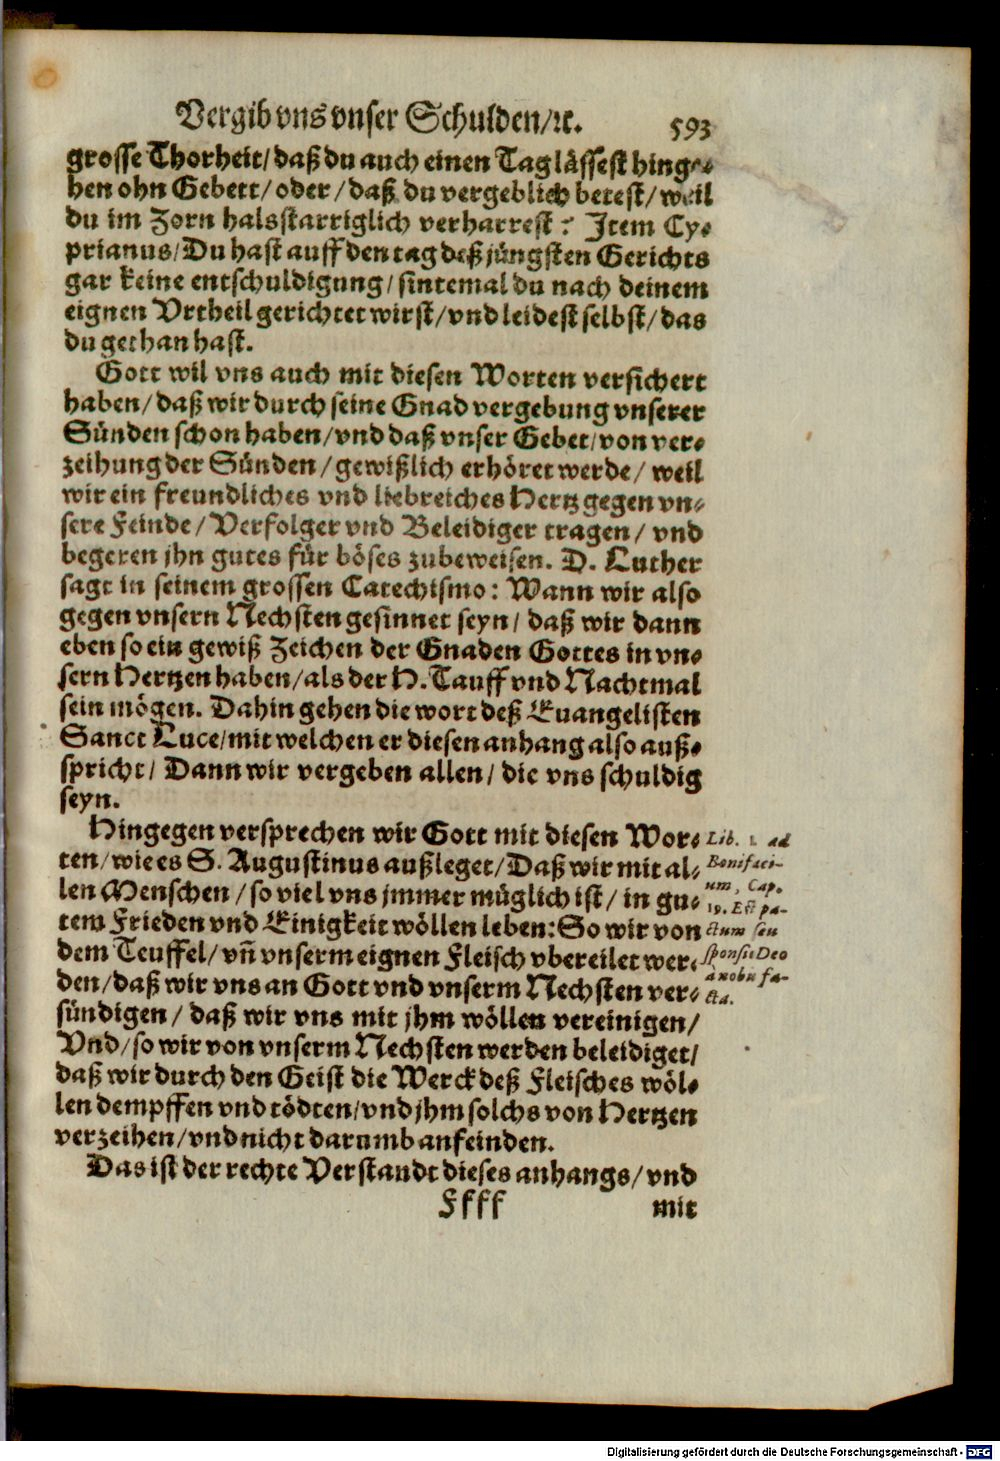 Vergib vns vnser Schulden/ꝛc. 593
grosse Thorheit/ daß du auch einen Tag lässest hinge-
hen ohn Gebett/ oder/ daß du vergeblich betest/ weil
du im Zorn halsstarriglich verharrest? Item Cy-
prianus/ Du hast auff den tag deß jüngsten Gerichts
gar keine entschuldigung/ sintemal du nach deinem
eignen Vrtheil gerichtet wirst/ vnd leidest selbst/ das
du gethan hast.
Gott wil vns auch mit diesen Worten versichert
haben/ daß wir durch seine Gnad vergebung vnserer
Sünden schon haben/ vnd daß vnser Gebet/ von ver-
zeihung der Sünden/ gewißlich erhöret werde/ weil
wir ein freundliches vnd liebreiches Hertz gegen vn-
sere Feinde/ Verfolger vnd Beleidiger tragen/ vnd
begeren jhn gutes für böses zubeweisen. D. Luther
sagt in seinem grossen Catechismo: Wann wir also
gegen vnsern Nechsten gesinnet seyn/ daß wir dann
eben so ein gewiß Zeichen der Gnaden Gottes in vn-
sern Hertzen haben/ als der H. Tauff vnd Nachtmal
sein mögen. Dahin gehen die wort deß Euangelisten
Sanct Luce/ mit welchen er diesen anhang also auß-
spricht/ Dann wir vergeben allen/ die vns schuldig
seyn.
Hingegen versprechen wir Gott mit diesen Wor-
ten/ wie es S. Augustinus außleget/ Daß wir mit al-
len Menschen/ so viel vns jmmer müglich ist/ in gu-
tem Frieden vnd Einigkeit wöllen leben: So wir von
dem Teuffel/ vñ vnserm eignen Fleisch vbereilet wer-
den/ daß wir vns an Gott vnd vnserm Nechsten ver-
sündigen/ daß wir vns mit jhm wöllen vereinigen/
Vnd/ so wir von vnserm Nechsten werden beleidiget/
daß wir durch den Geist die Werck deß Fleisches wöl-
len dempffen vnd tödten/ vnd jhm solchs von Hertzen
verzeihen/ vnd nicht darumb anfeinden.
Das ist der rechte Verstandt dieses anhangs/ vnd
Ffff mit
Lib. 1. ad
Bonifaci-
um, Cap.
Est pa-
ctum seu
sponsu Deo
a nobis fa-
cta.
Digitalisierung gefördert durch die Deutsche Forschungsgemeinschaft - DFG